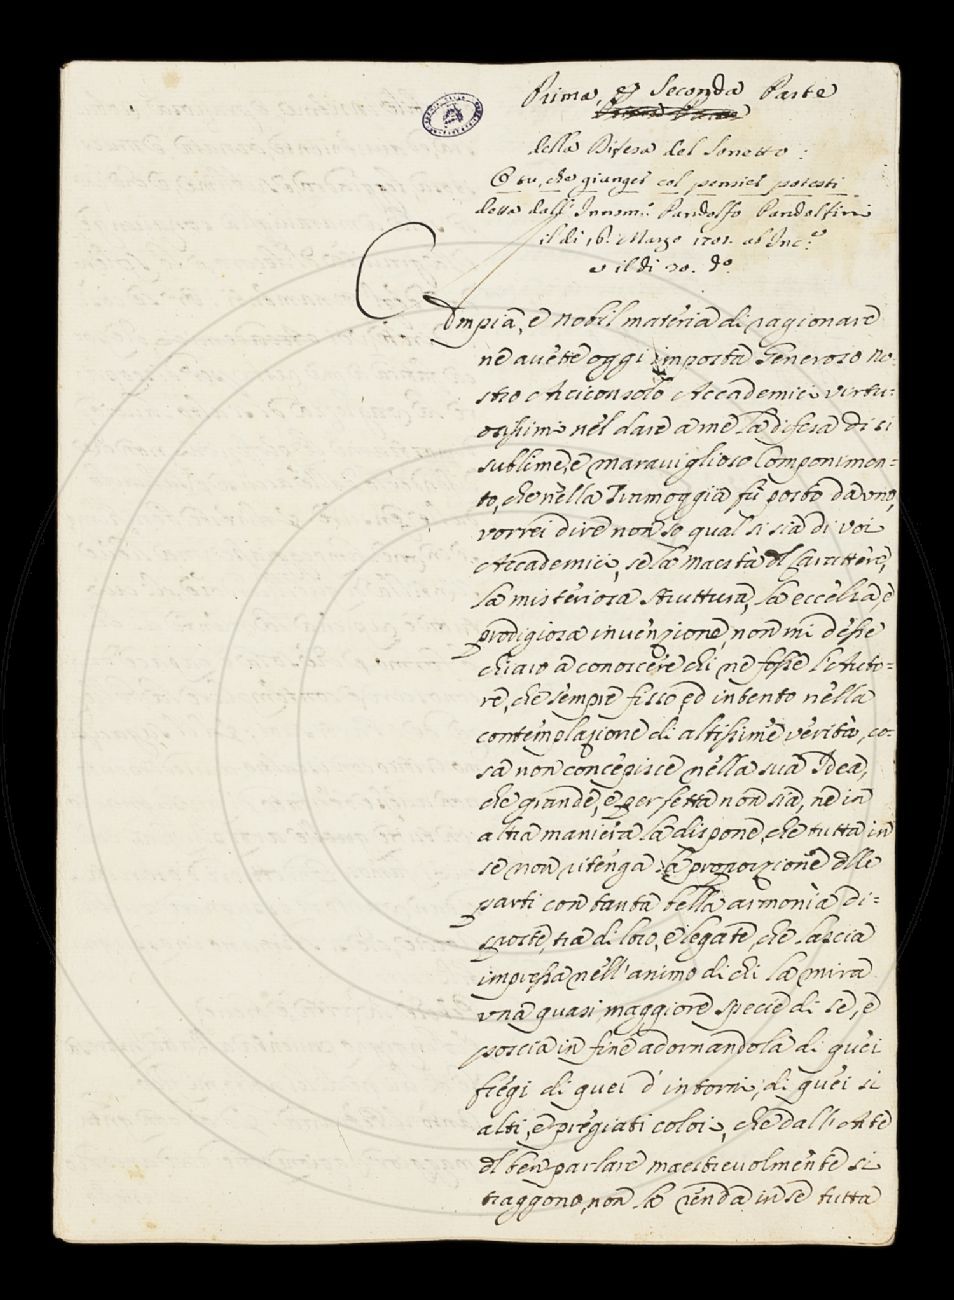 Prima, e Seconda Parte
della Difesa del Sonetto:
O tu, che giungi col pensier potesti
detta dall' Innom: Pandolfo Pandolfini
il di 16. Marzo 1701. ab Inc.e
e il di 20. do.
Ampia, e nobil materia di ragionare
ne avette oggi imposta Generoso no-
stro Arciconsolo Accademici virtu-
osissimi nel dare a me la difesa di si
sublime, e maraviglioso Componimen=
to, che nella Tramoggia fù posto da uno,
vorrei dire non so qual si sia di voi
Accademici, se la maestà del Carattere,
la misteriosa struttura, la eccelsa, e
prodigiosa invenzione, non mi desse
chiaro a conoscere chi ne fosse l'Auto=
re, che sempre fisso, ed intento nella
contemplazione di altissime verità, co-
sa non concepisce nella sua Idea,
che grande, e perfetta non sia, ne in
altra maniera la dispone, che tutta in
se non ritenga la proporzione delle
parti con tanta bella armonia di=
sposte, tra di loro, e legate, che lascia
impressa nell'animo di chi la mira
una quasi maggiore specie di se, e
poscia in fine adornandola di quei
fregi di quei d'intorni, di quei si
alti, e pregiati colori, che dall'Arte
del ben parlare maestrevolmente si
traggono, non la renda in se tutta